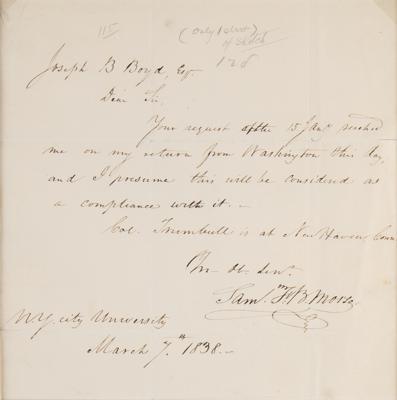 115
(only 1 sheet
of sketch)
126
Joseph B Boyd, Esqr
Dear Sir.
Your request of the 15 Jany. reached
me on my return from Washington this day,
and I presume this will be considered as
a compliance with it.—
Col. Trumbull is at New Haven Conn
Yr. Ob. Servt.
Saml. F. B. Morse
N.Y. city University
March 7.th 1838.—